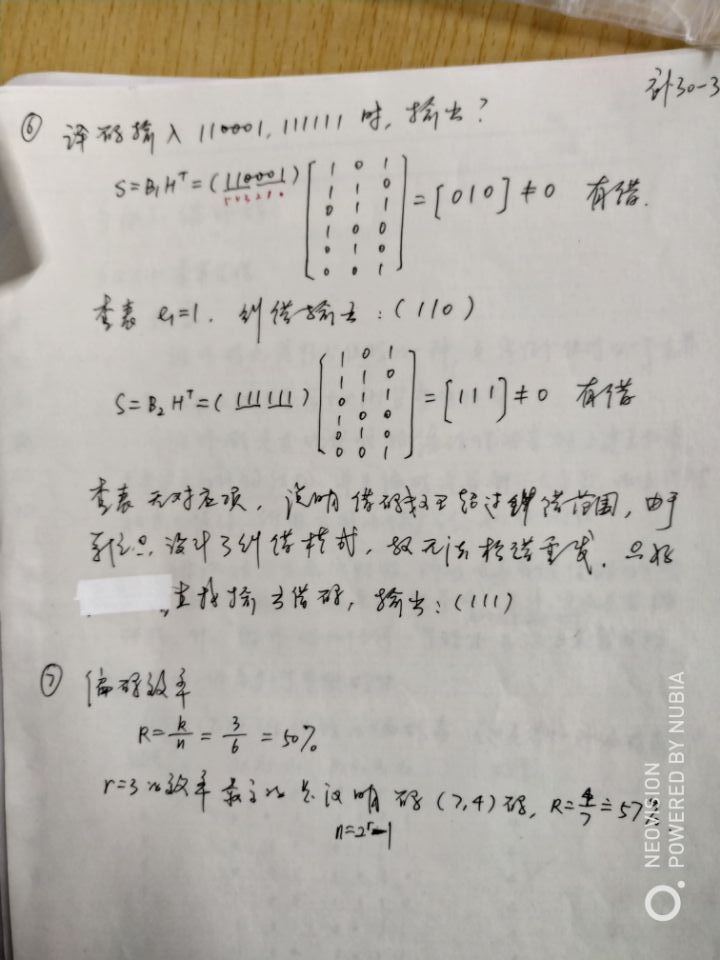 计30-3
⑥ 译码输入 110001, 111111 时, 输出?
S=B₁Hᵀ=(110001) [1 0 1
5 4 3 2 1 0
1 1 0
0 1 1
1 0 0
0 1 0
0 0 1] =[010]≠0 有错.
查表 e₁=1. 纠错输出:(110)
S=B₂Hᵀ=(111111) [1 0 1
1 1 0
0 1 1
1 0 0
0 1 0
0 0 1] =[111]≠0 有错
查表无对应项, 说明错码数已超过纠错范围, 由于
系统只设计了纠错模式, 故无法检错重发. 只好
直接输出错码, 输出:(111)
⑦ 编码效率
R=k/n=3/6=50%
r=3的效率最高的是汉明码(7,4)码, R=4/7≐57%
n=2ʳ-1
NEOVISION
POWERED BY NUBIA